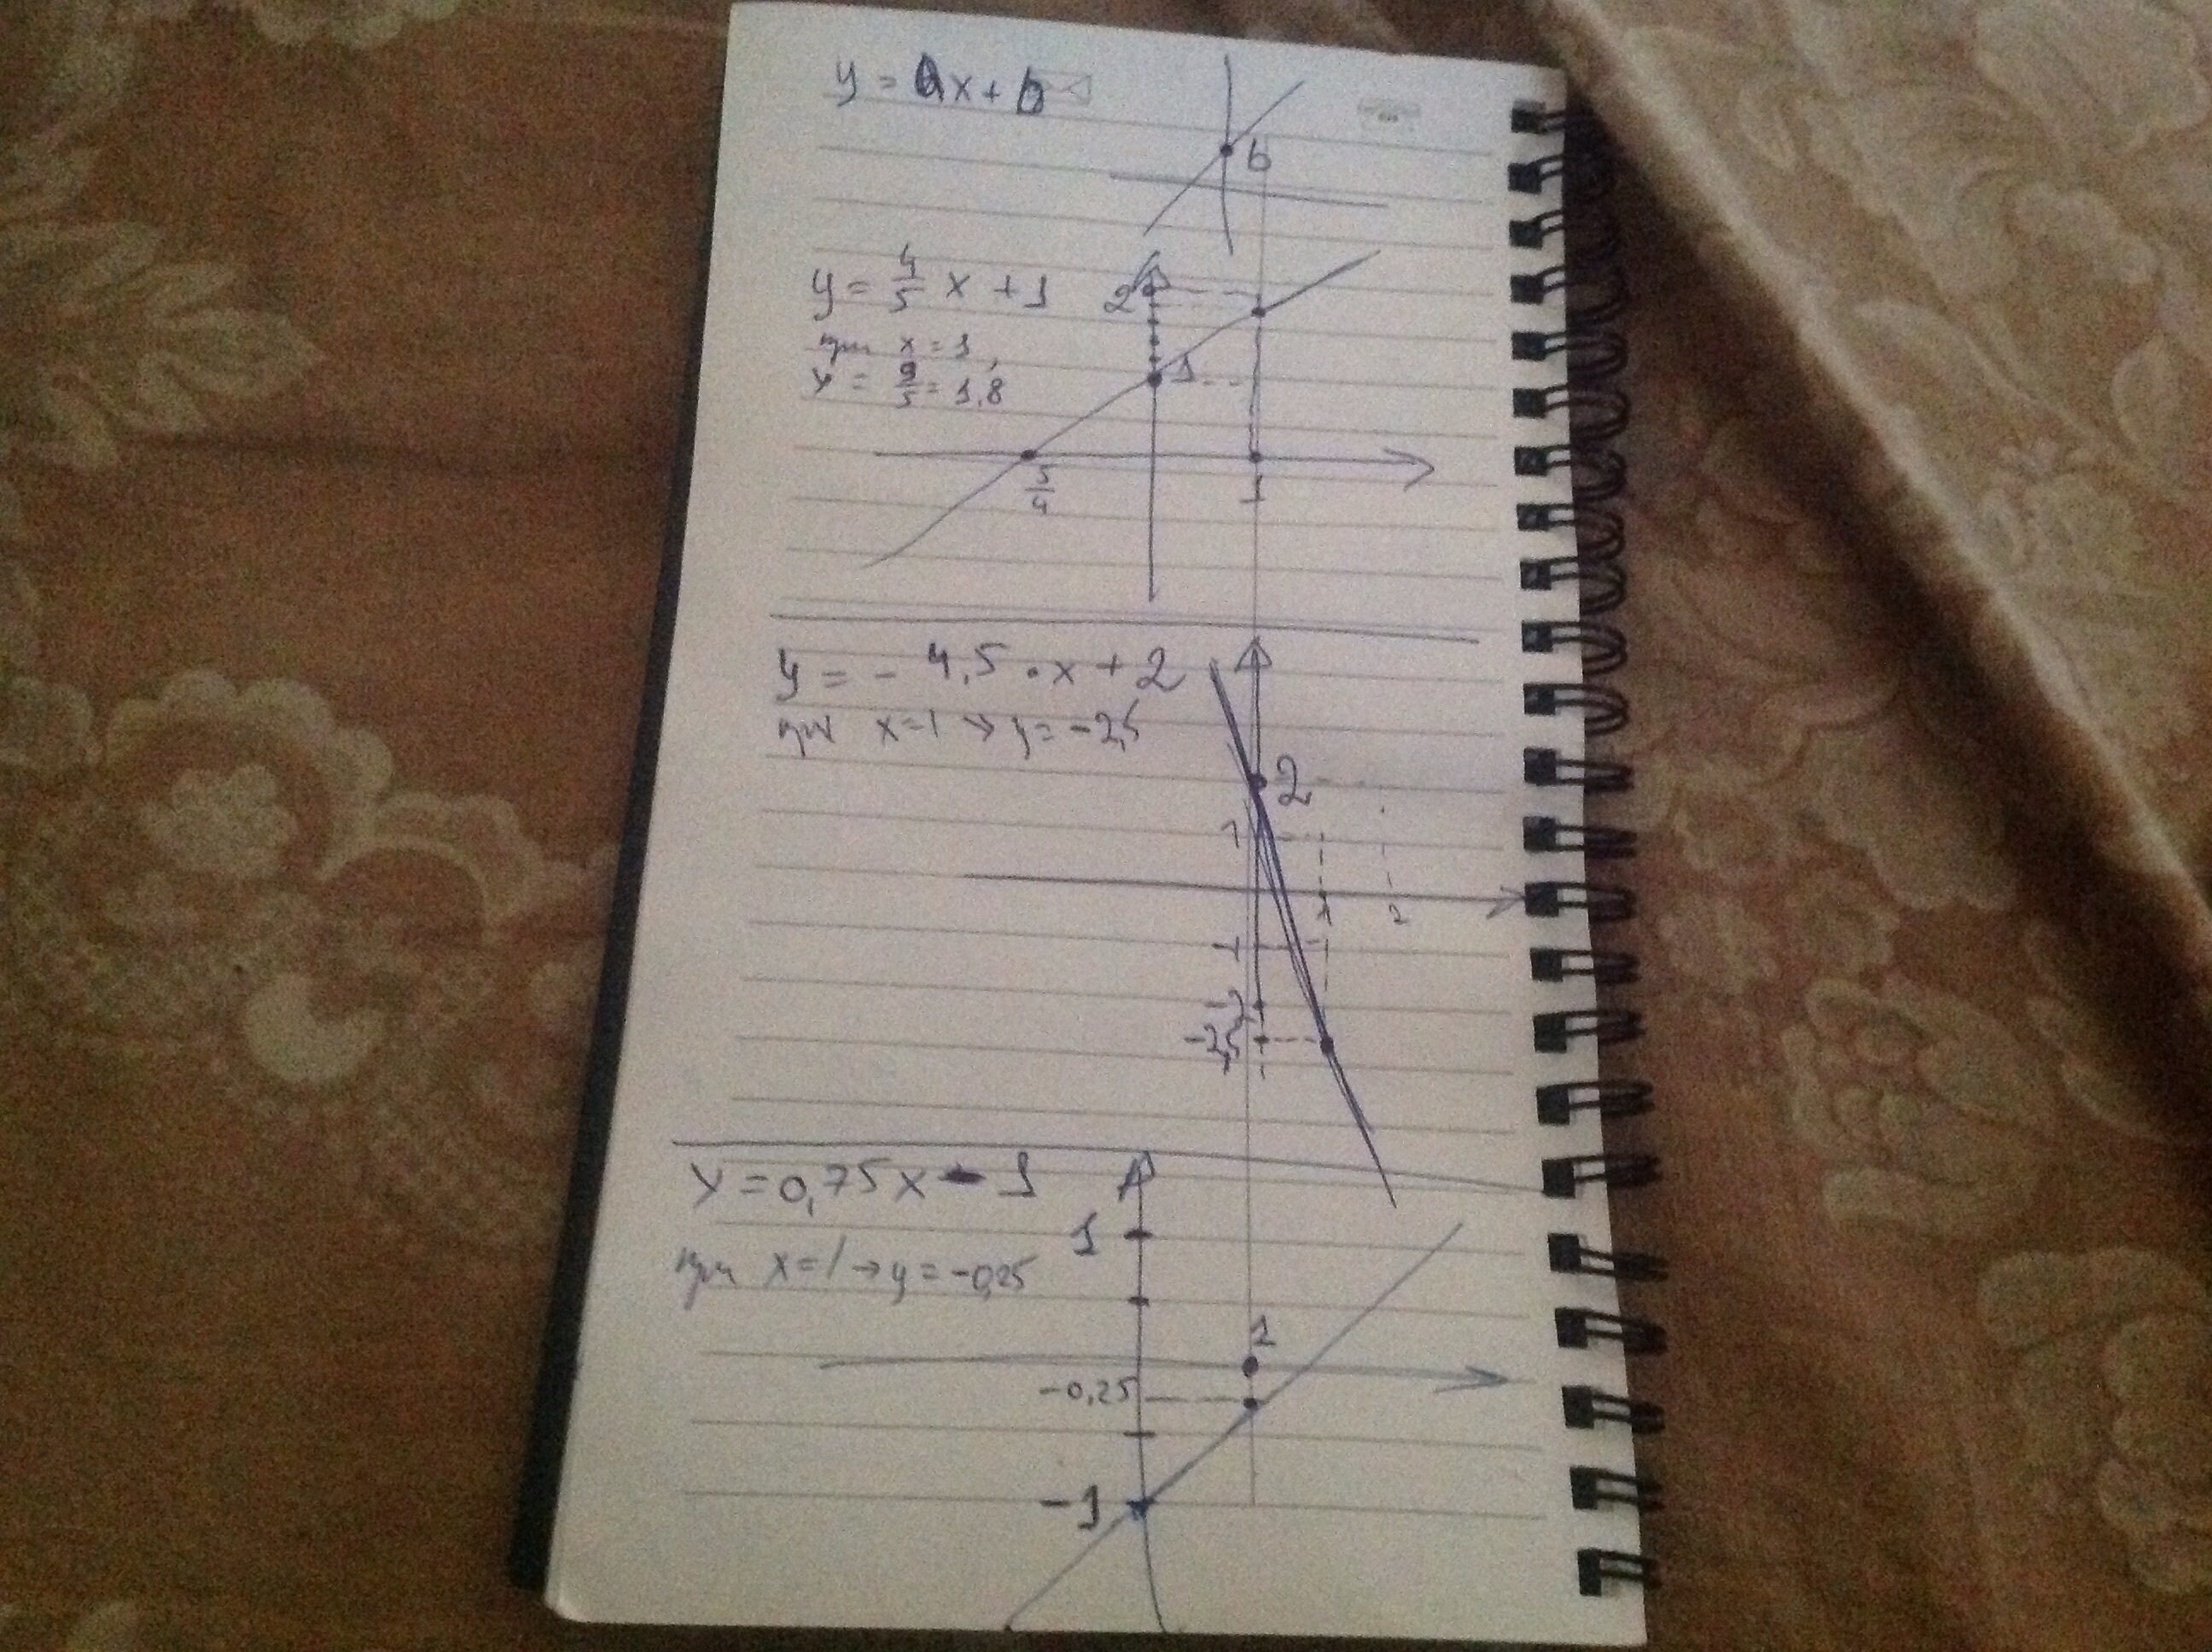 y = ax + b
b
y = 4/5 x + 1
2
при x = 1,
y = 9/5 = 1,8
1
5/4
1
y = - 4,5 · x + 2
при x = 1 → y = -2,5
2
1
1
2
-1
-2
-2,5
y = 0,75x - 1
1
при x = 1 → y = -0,25
1
-0,25
-1